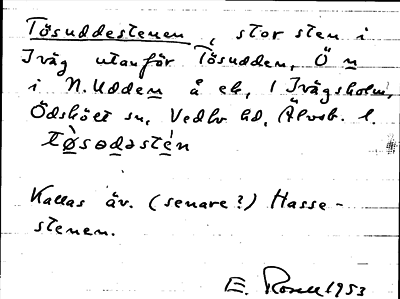 Tösuddestenen, stor sten i
Iväg utanför Tösudden, Ö n
i N. Udden å ek, 1 Ivägsholm,
Ödskölt sn, Vedbo hd, Älvsb. l.
tø̀sɵdəstén
Kallas äv. (senare?) Hasse-
stenen.
E. Rosell 1953